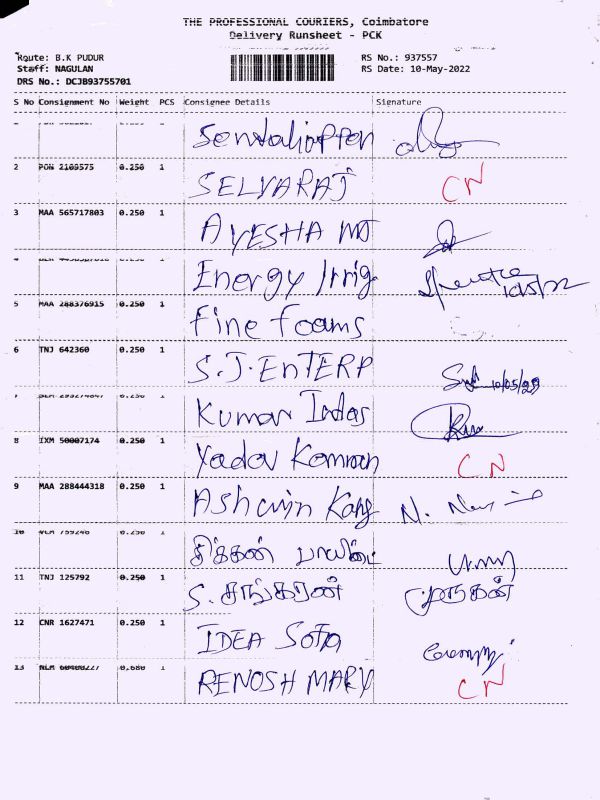 THE PROFESSIONAL COURIERS, Coimbatore
Delivery Runsheet - PCK
Route: B.K PUDUR
RS No.: 937557
Staff: NAGULAN
RS Date: 10-May-2022
DRS No.: DCJB93755701
S No Consignment No Weight PCS Consignee Details Signature
2 PON 2109575 0.250 1 SELVARAJ CN
3 MAA 565717803 0.250 1 AYESHA MJ
Energy Irrig 10/5/22
5 MAA 288376915 0.250 1 Fine Foams
6 TNJ 642360 0.250 1 S.J.EnTERP 10/05/22
Kumar Indas
8 IXM 50007174 0.250 1 Yadav Kamran CN
9 MAA 288444318 0.250 1 Ashwin Kang N.
சிக்கன்
11 TNJ 125792 0.250 1 S. சங்கரன் முருகன்
12 CNR 1627471 0.250 1 IDEA Sofa
13 0.680 1 RENOSH MARY CN